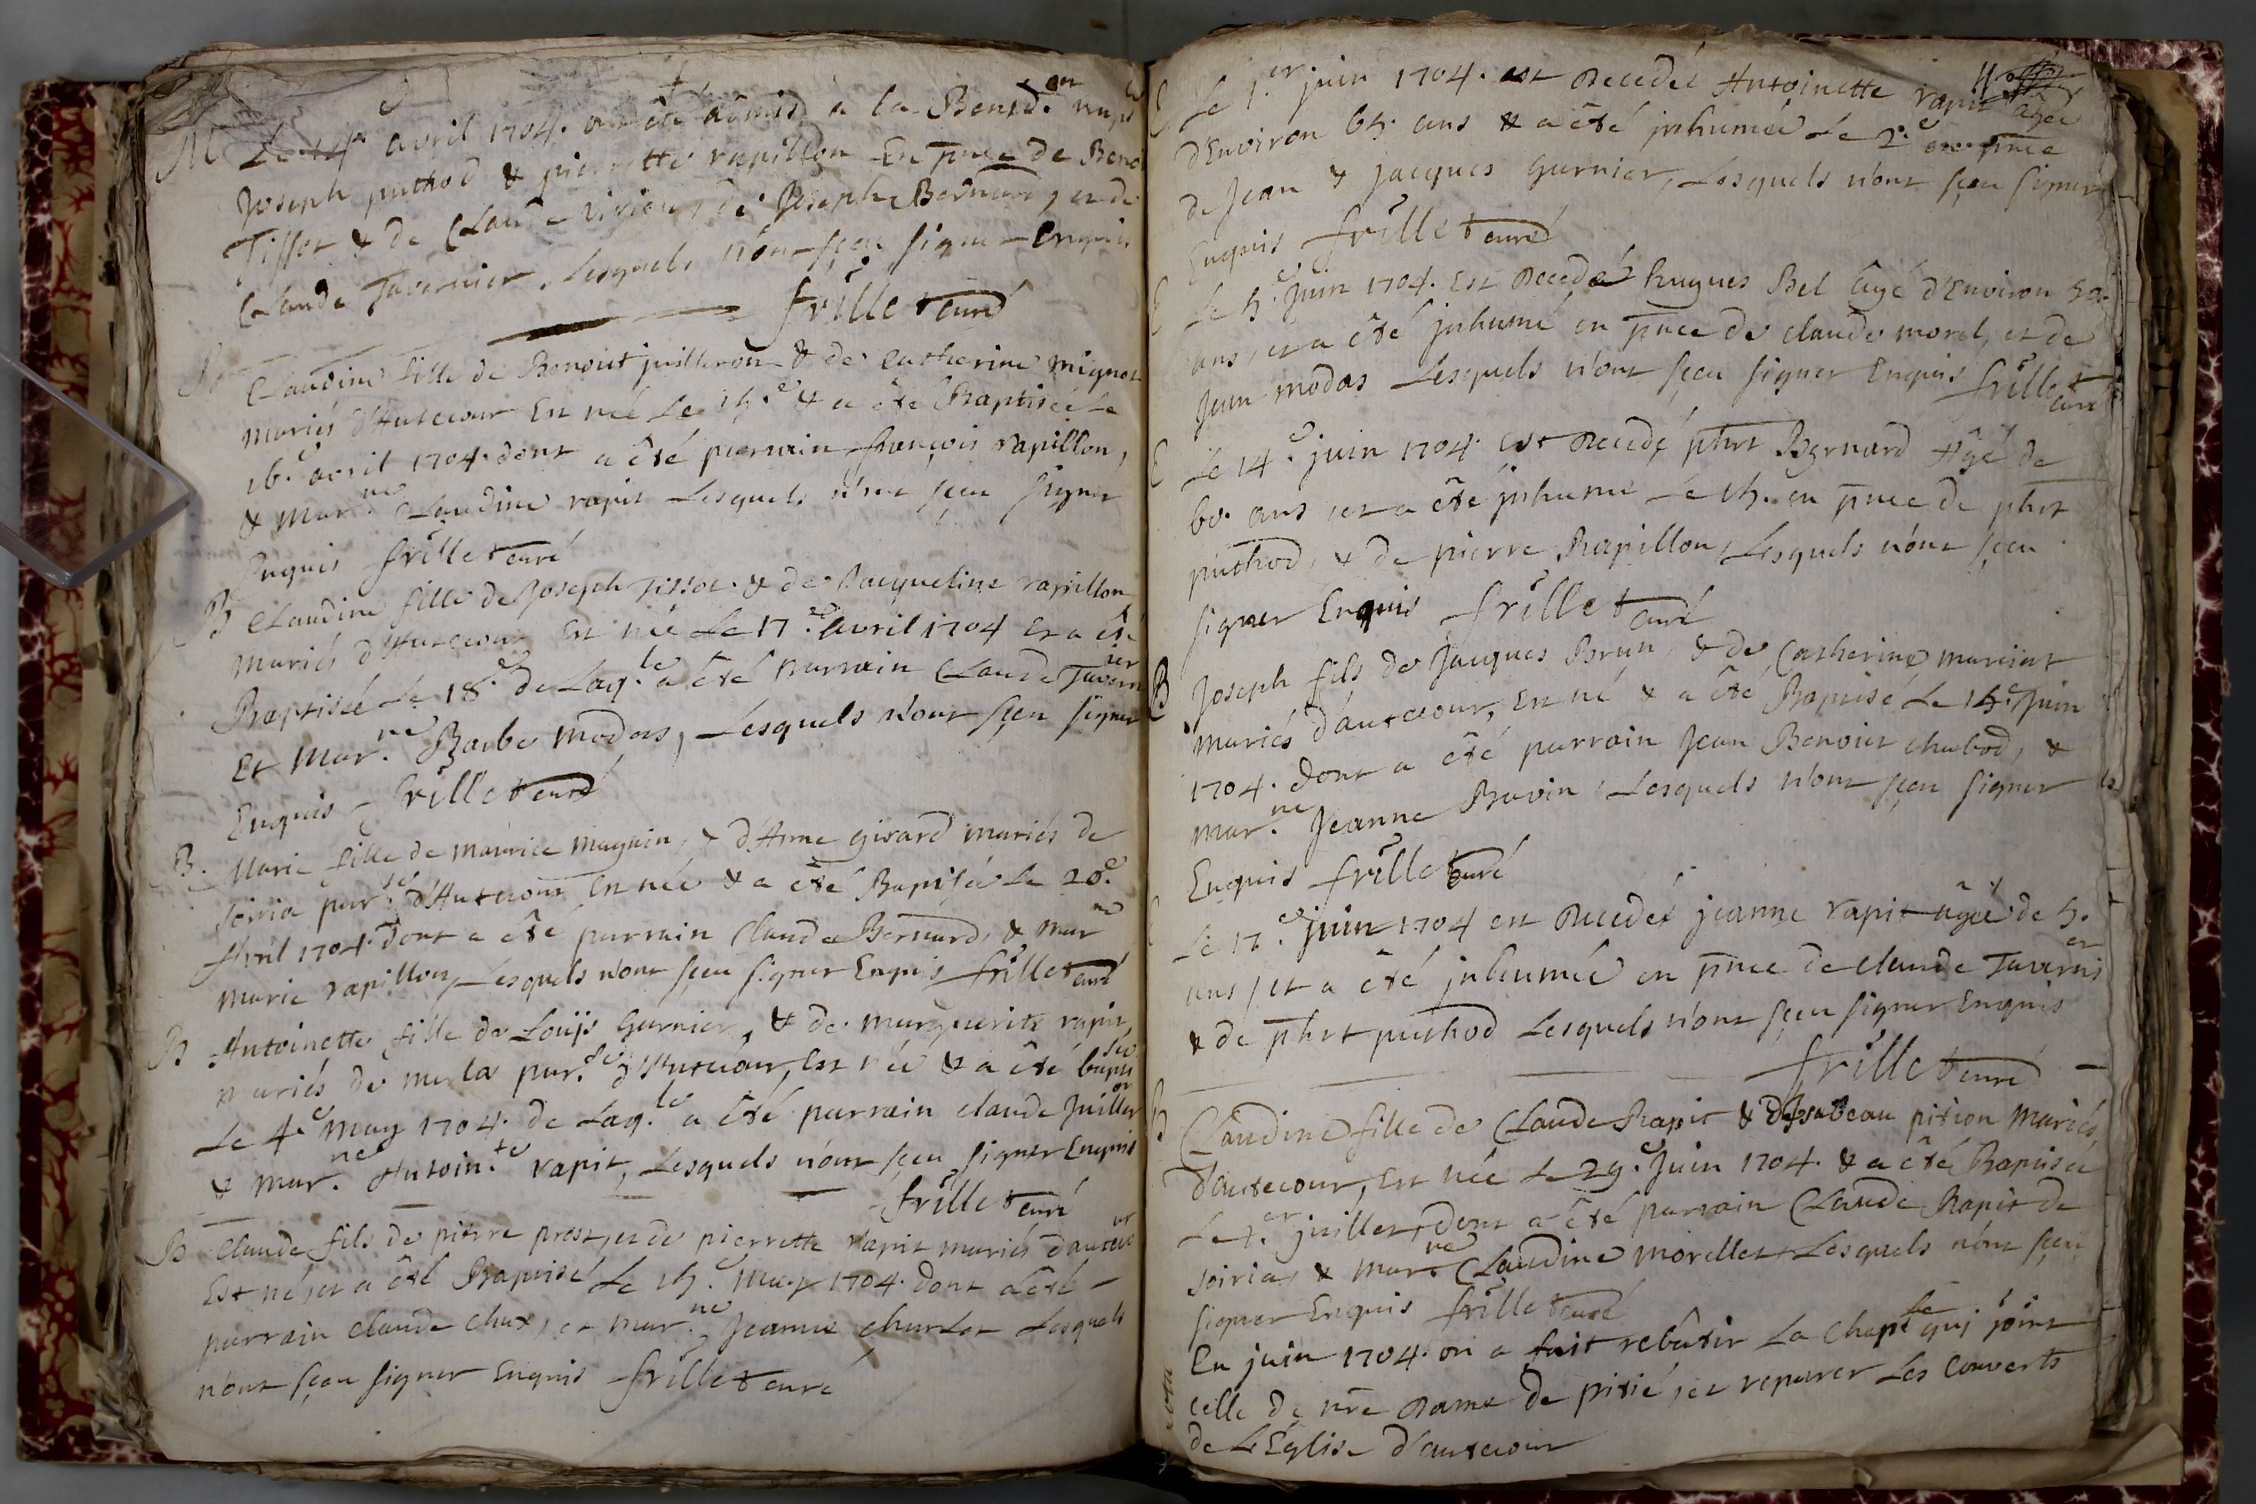 M Le 14e avril 1704. ont été admis à la Bened.on nupt
Joseph puthod & pierrette rapillon En pnce de Benoi
Tissot & de Claude vivian, de Joseph Bernard, et de
Claude Tavernier, Lesquels n'ont sçeu signer Enquis
frillet curé
B Claudine fille de Benoist juilleron & de catherine mignot
mariés d'Autecour Est née Le 15.e & a été Baptisée Le
16.e avril 1704. dont a été parrain françois rapillon,
& mar.ne Claudine rapit Lesquels n'ont sçeu signer
Enquis frillet curé
B Claudine fille de Joseph Tissot & de Jacqueline rapillon
mariés d'Autecour Est née Le 17.e avril 1704 Et a été
Baptisée Le 18.e de Laq.le a été parrain Claude Tavernier
Et Mar.ne Barbe modas, Lesquels n'ont sçeu signer
Enquis frillet curé
B. Marie fille de maurice magnin, & d'Anne girard mariés de
soiria par.se d'Autecour Est née & a été Baptisée Le 20.e
Avril 1704. dont a été parrain Claude Bernard, & mar.ne
marie rapillon, Lesquels n'ont sçeu signer Enquis frillet curé
B Antoinette fille de Louïs Garnier, & de marguerite rapit,
mariés de par.se d'Autecour, Est née & a été baptisée
Le 4.e May 1704. de Laq.le a été parrain claude juilleron
& mar.ne Antoin.te rapit, Lesquels n'ont sçeu signer Enquis
frillet curé
B Claude fils de pierre prost, et de pierrette rapit mariés d'autecour
Est né, et a été Baptisé Le 15.e May 1704. dont a été
parrain claude chat, et mar.ne Jeanne charlot Lesquels
n'ont sçeu signer Enquis frillet curé
Le 1.er juin 1704. est Decedée Antoinette rapit âgée
d'Environ 65. ans & a été inhumée Le 2.e en pnce
de Jean & Jacques Garnier, Lesquels n'ont sçeu signer
Enquis frillet curé
Le 5.e juin 1704. Est Decedé hugues Bel âgé d'Environ 50.
ans, et a été inhumé en pnce de claude morel, et de
Jean modas Lesquels n'ont sçeu signer Enquis frillet
curé
Le 14.e juin 1704. Est Decedé phrt Bernard Agé de
60. ans, et a été inhumé Le 15. en pnce de phrt
puthod, & de pierre Rapillon, Lesquels n'ont sçeu
signer Enquis frillet curé
B Joseph fils de Jacques Brun, & de Catherine
mariés d'autecour, Est né & a été Baptisé Le 15.e Juin
1704. dont a été parrain Jean Benoist chabod, &
mar.ne Jeanne Bavin, Lesquels n'ont sçeu signer
Enquis frillet curé
Le 17.e juin 1704 est Decedée jeanne rapit agée de 5.
ans, et a été inhumée en pnce de claude Tavernier
& de phrt puthod Lesquels n'ont sçeu signer Enquis
frillet curé
B Claudine fille de Claude Rapit & d'Isabeau pition Mariés
d'autecour, Est née Le 29.e Juin 1704. & a été Baptisée
Le 1.er juillet, dont a été parrain Claude Rapit de
soiria, & mar.ne Claudine morellet Lesquels n'ont sçeu
signer Enquis frillet curé
nota En juin 1704. on a fait rebâtir La Chap.le qui joint
celle de nre Dame de pitié, et reparer Les Couverts
de L'Église d'autecour